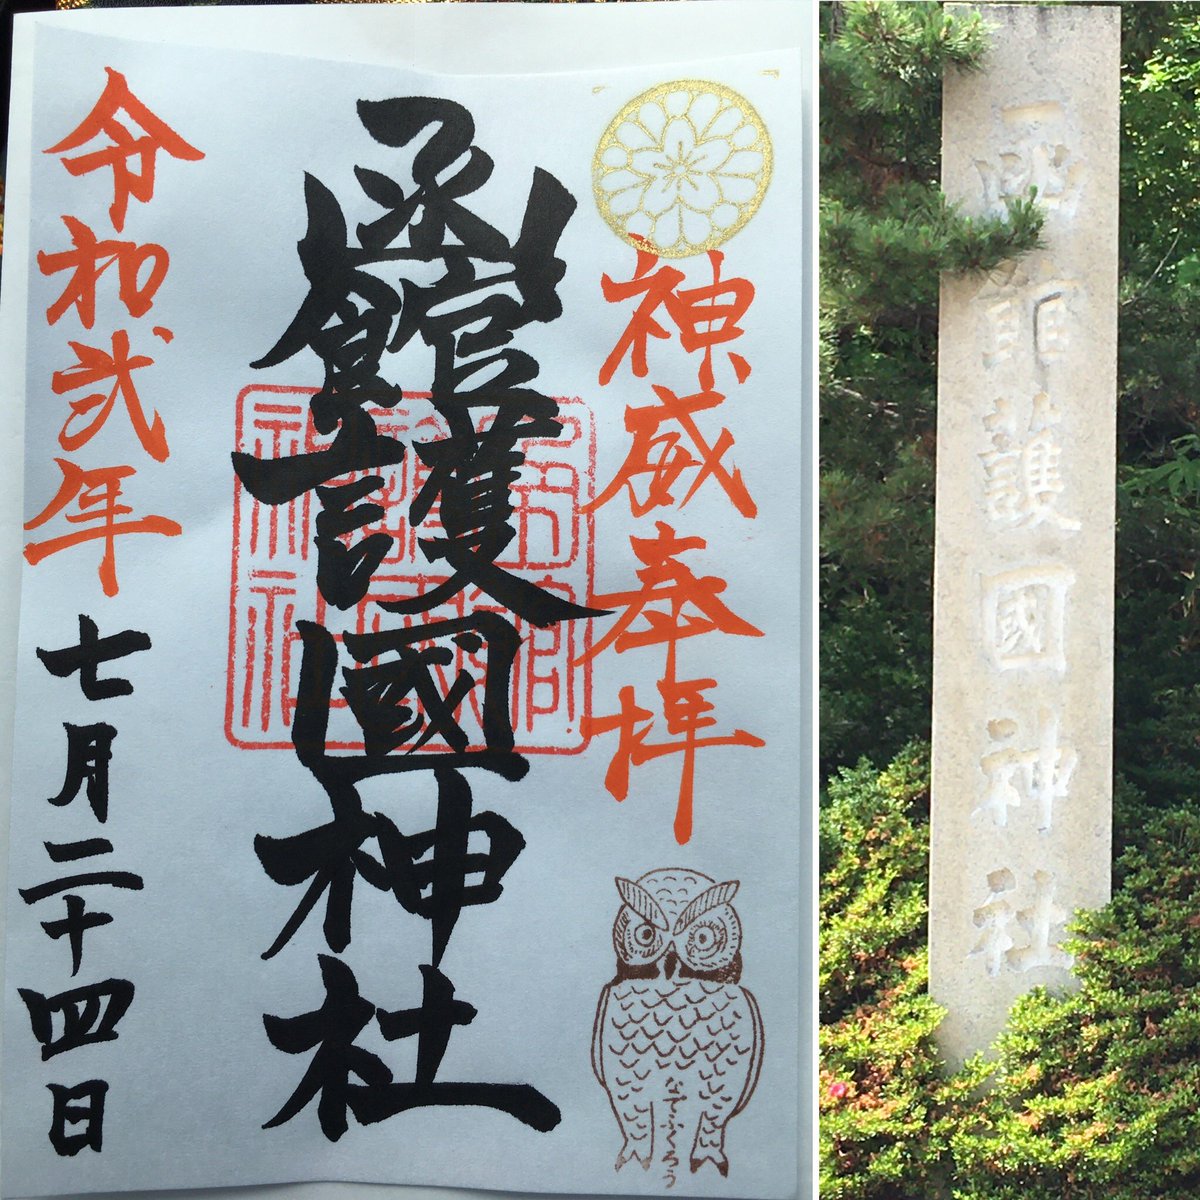 神威奉拝
なでふくろう
函館護國神社
令和弐年七月二十四日
函館護國神社